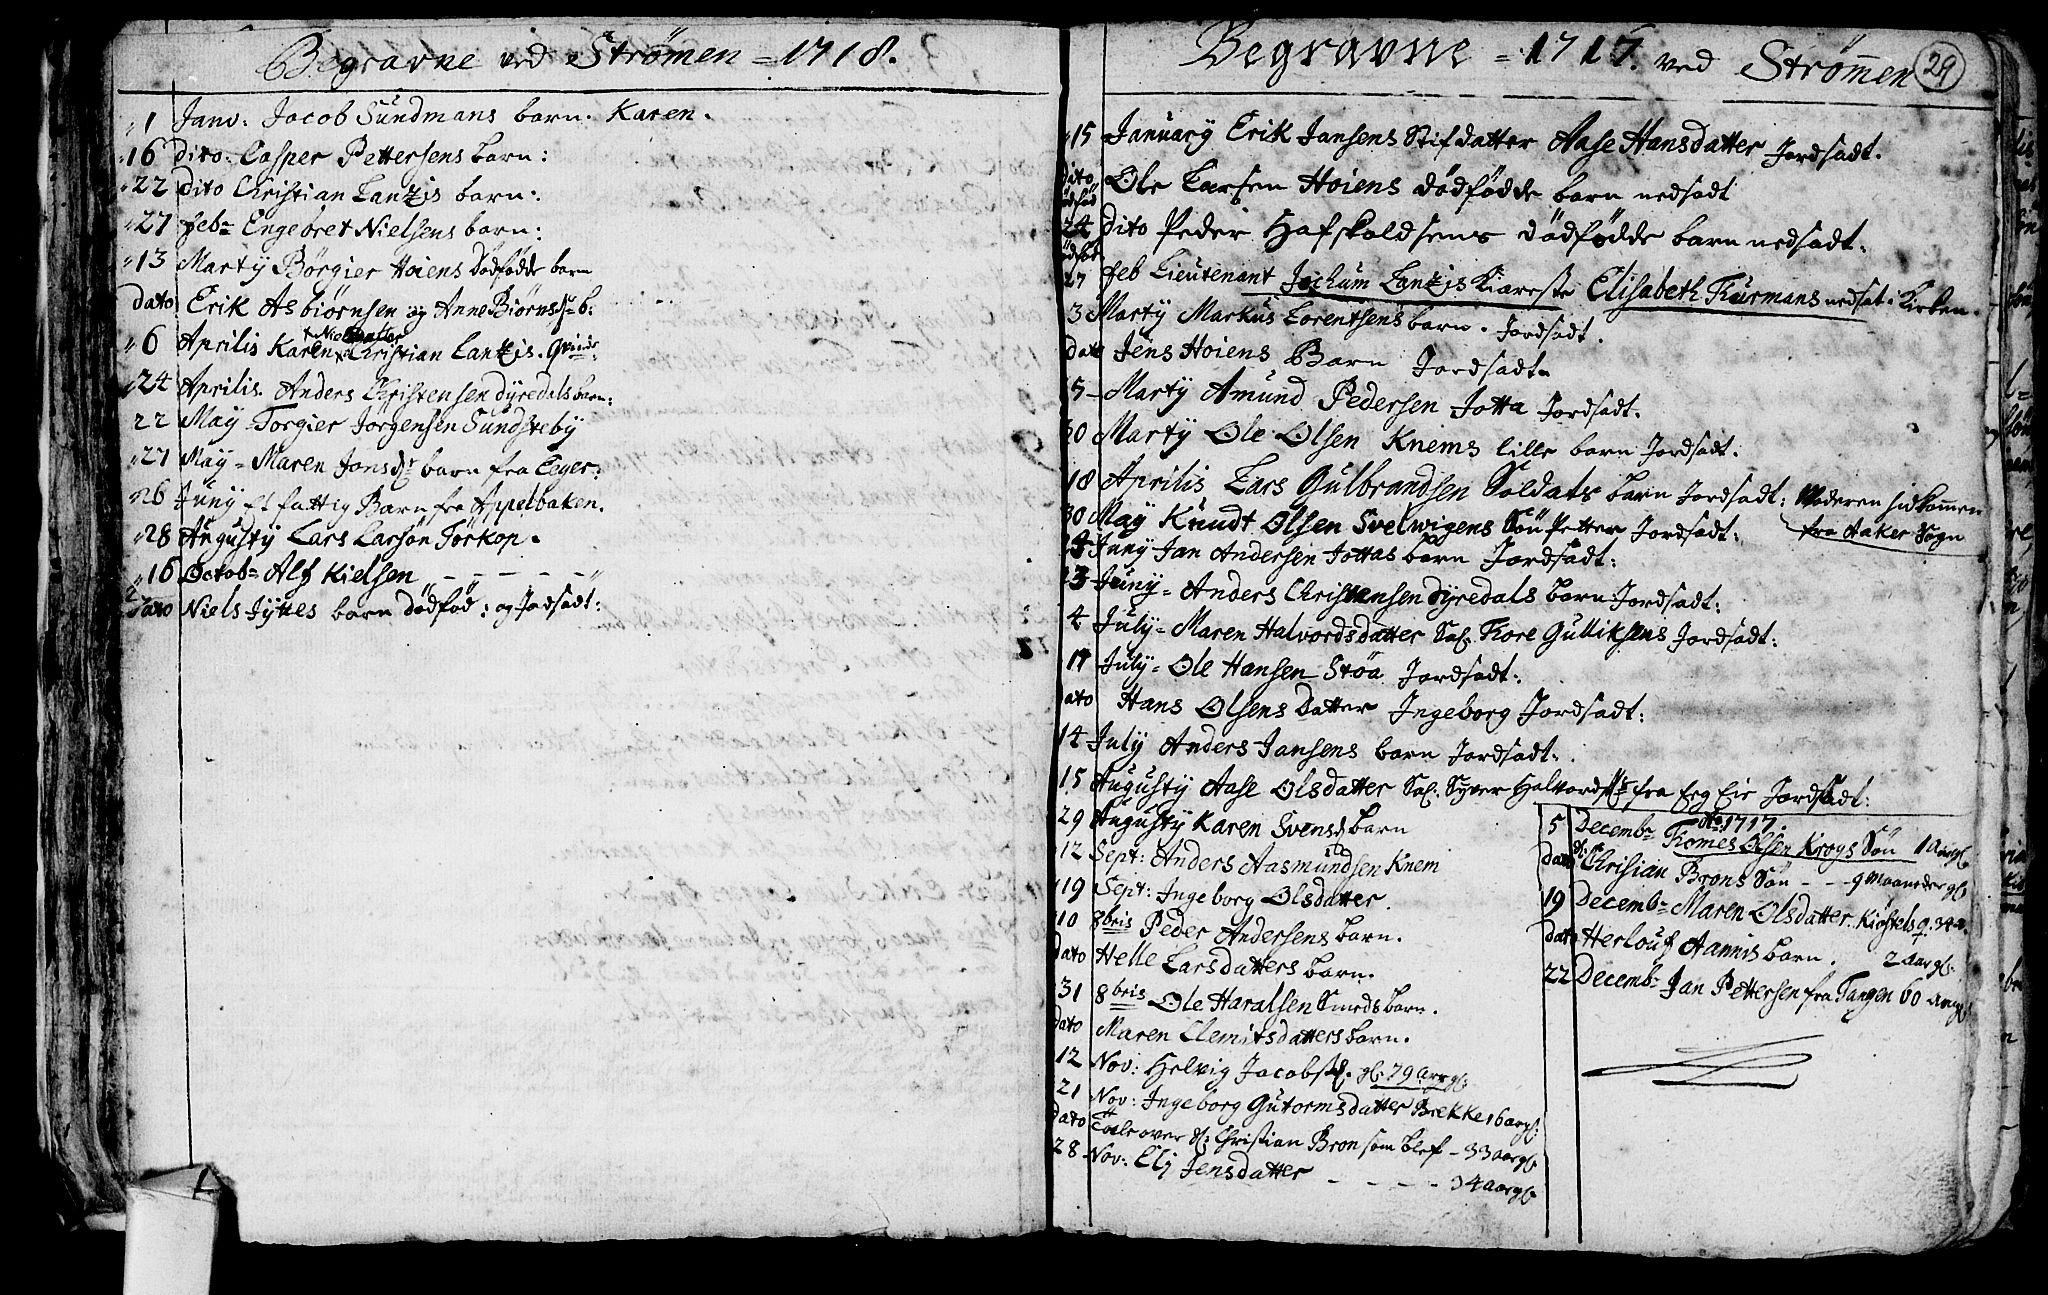 Begravne ved Strömen = 1718.
1 Janv: Jacob Sündmans barn. Karen.
16 dito: Casper Pettersens barn:
22 dito Christian Lantzis barn:
27 feb: Engebret Nielsens barn:
13 Marty Börgier Hoiens dödfödde barn
dato Erik Asbiörnsen og Anne Biörns b:
Nielsdatter
6 Aprilis Karen Christian Lantzis. qvinde
24 Aprilis. Anders Christensen dyredals barn:
22 May Torgier Jorgensen Sundsteby
21 May = Maren Jonsd: barn fra Eeger:
26 Juny Et fattig Barn fra Appelbaken.
28 Augusty Lars Larsön Törkop.
16 Octob= Alf Kielsen
dato Niels Jyttes barn dödföd: og Jordsadt:
Begravne = 1717. ved Strömen
29
15 January Erik Jansens Stifdatter Aase Hansdatter Jordsadt.
dito Ole Larsen Hoiens dödfödde barn nedsadt
24 dito Peder Hafskoldsens dödfödde barn nedsadt.
27 feb Lieutenant Jochum Lantzis Kiæreste Elisabeth Furmans nedsat i Kirken.
3 Marty Markus Lorentsens barn. Jordsadt.
dato Jens Hoiens Barn Jordsadt
15 Marty Amund Pedersen Jotta Jordsadt.
30 Marty Ole Olsen Knems lille barn Jordsadt.
18 Aprilis Lars Gulbrandsen Soldats barn Jordsadt: Moderen hidkommen
fra Aaker Sogn
30 May Knudt Olsen Svelwigens Sön Petter Jordsadt:
Juny Jan Andersen Jottas barn Jordsadt:
13 Juny = Anders Christensen dyredals barn Jordsadt:
4 July = Maren Halvordsdatter Sal. Tore Gulliksens Jordsadt:
17 July = Ole Hansen Stöa Jordsadt:
dato Hans Olsens datter Ingeborg Jordsadt:
14 July Anders Jansens barn Jordsadt:
15 Augusty Aase Olsdatter Sal: Syver Halvords fra Eeg Eie Jordsadt:
29 Augusty Karen Svensd barn
12 Sept: Anders Aasmundsen Knem
19 Sept: Ingeborg Olsdatter.
10 8bris Peder Andersens barn.
dato Helle Larsdatters barn.
31 8bris Ole Haralsen Smeds barn.
dato Maren Clemitsdatters barn.
12 Nov: Helvig Jacobsd. gl: 79 Aar gl:
21 Nov: Ingeborg Gutormsdatter Brekke 16 aar gl:
dato Tale over Sl: Christian Bron som blef - 33 aar gl.
28 Nov: Elj Jensdatter - - - - 34 aar gl.
Ao 1717.
5 Decemb= Tomes Olsen Kroys Sön 1 Aar gl.
dato Sl: Chrisian Brons Sön - - 9 Maaneder gl.
19 Decemb= Maren Olsdatter Kiöstels q. 34 a.
dato Herlouf Aannis barn. 2 Aar gl.
22 Decemb= Jan Pettersen fra Tangen 60 Aar gl.